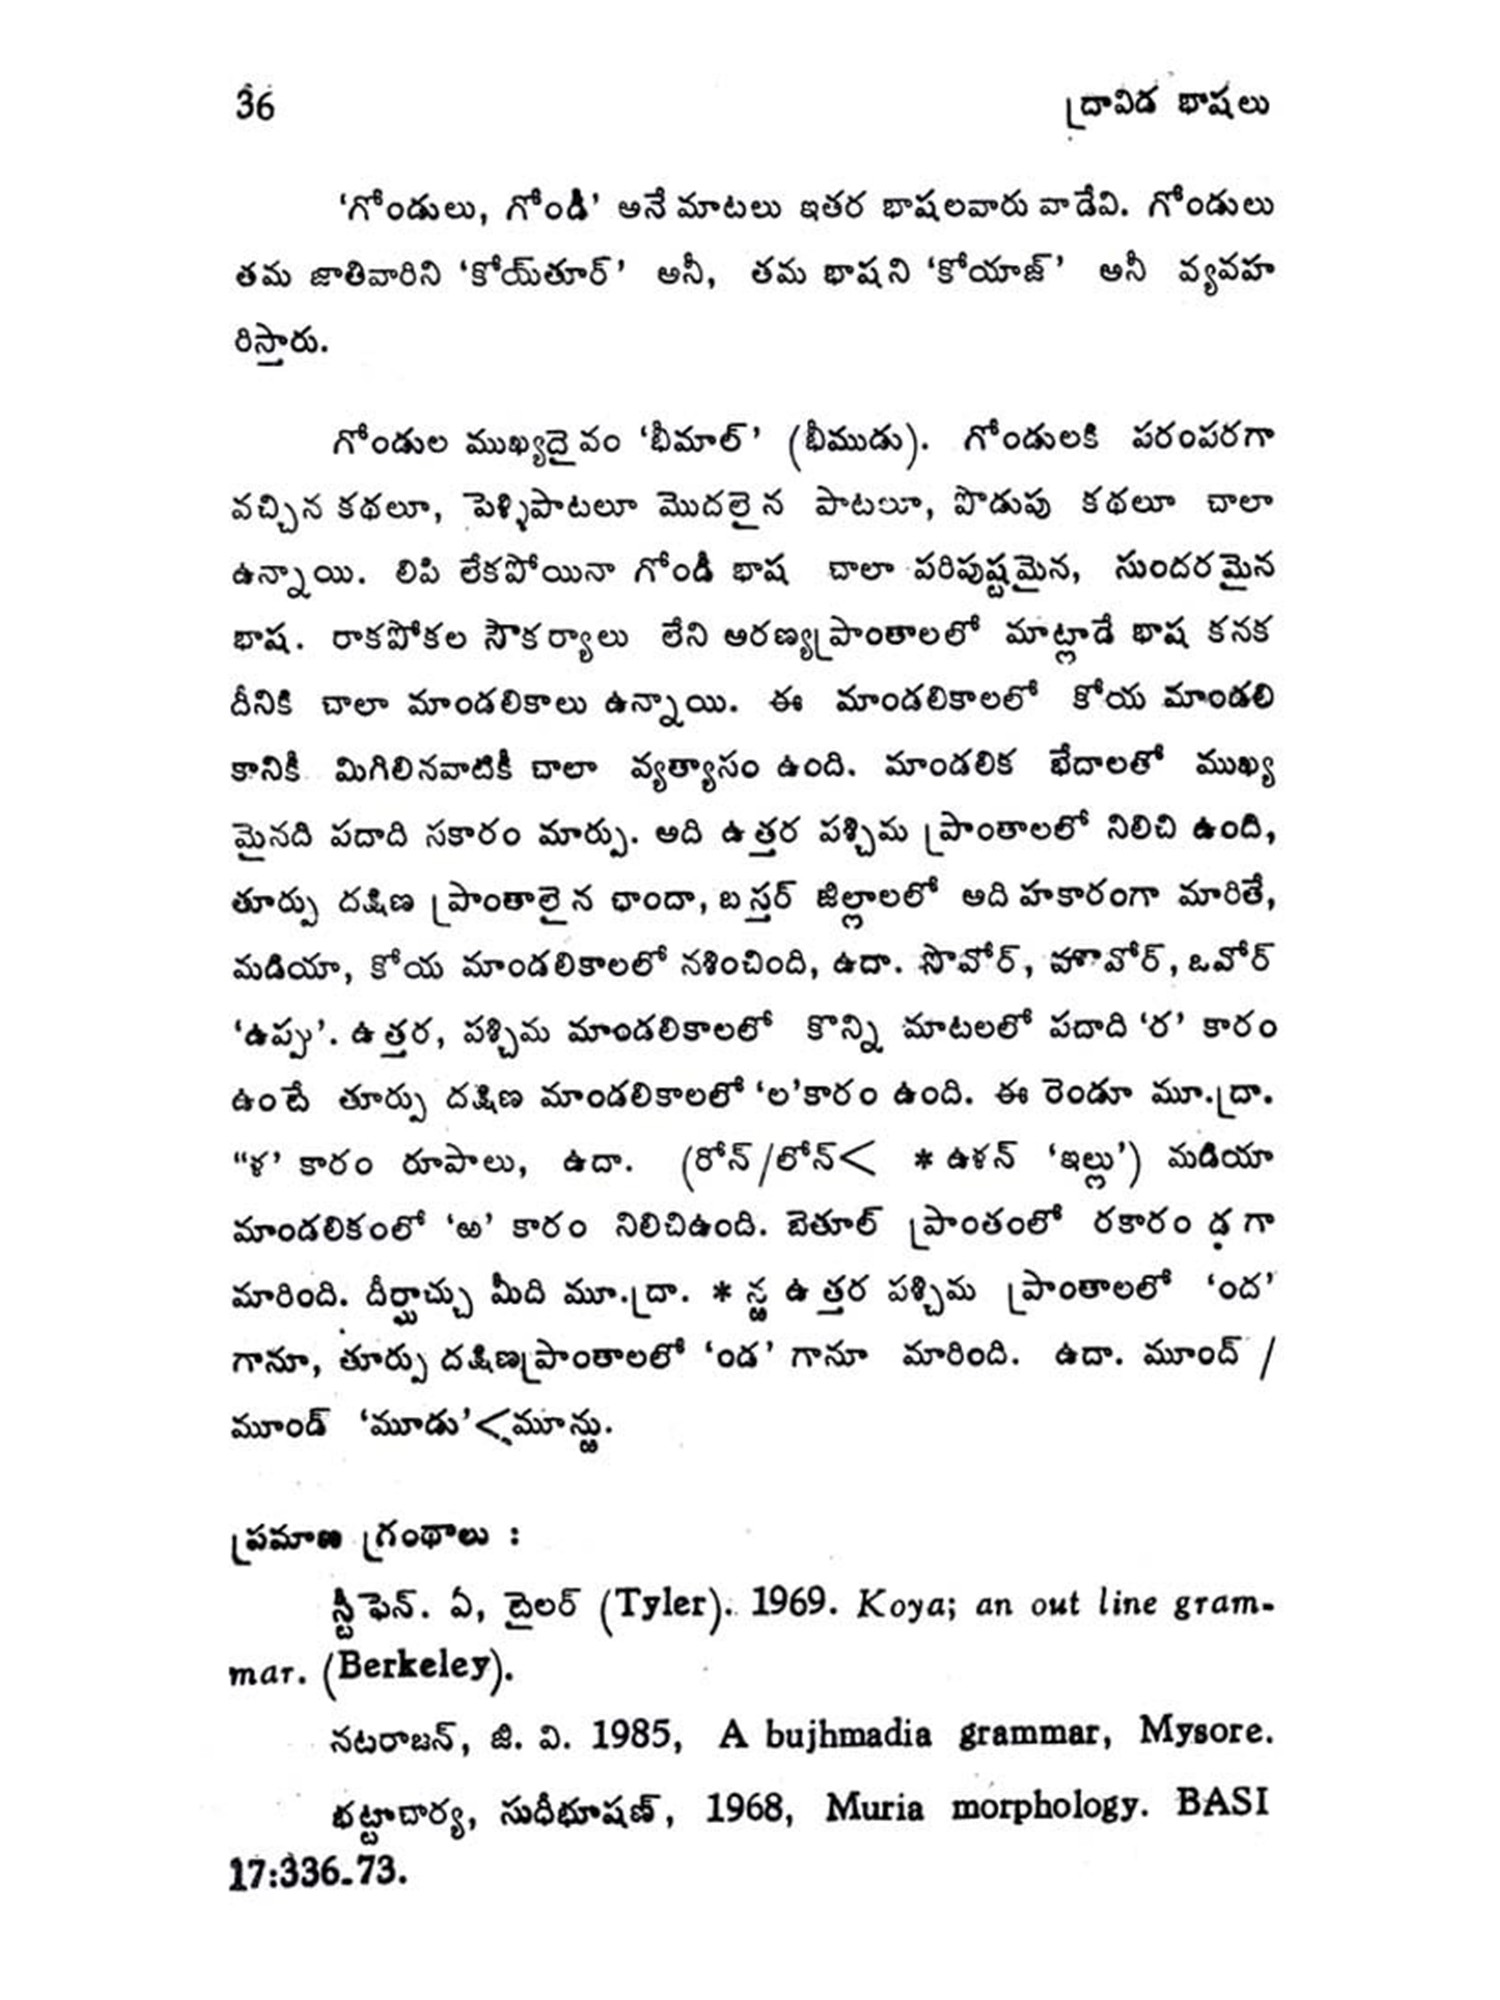 36 ద్రావిడ భాషలు
‘గోండులు, గోండీ’ అనే మాటలు ఇతర భాషలవారు వాడేవి. గోండులు
తమ జాతివారిని ‘కోయ్‌తూర్’ అనీ, తమ భాషని ‘కోయాజ్’ అనీ వ్యవహ
రిస్తారు.
గోండుల ముఖ్యదైవం ‘భీమాల్’ (భీముడు). గోండులకి పరంపరగా
వచ్చిన కథలూ, పెళ్ళిపాటలూ మొదలైన పాటలూ, పొడుపు కథలూ చాలా
ఉన్నాయి. లిపి లేకపోయినా గోండీ భాష చాలా పరిపుష్టమైన, సుందరమైన
భాష. రాకపోకల సౌకర్యాలు లేని అరణ్యప్రాంతాలలో మాట్లాడే భాష కనక
దీనికి చాలా మాండలికాలు ఉన్నాయి. ఈ మాండలికాలలో కోయ మాండలి
కానికీ మిగిలినవాటికీ చాలా వ్యత్యాసం ఉంది. మాండలిక భేదాలతో ముఖ్య
మైనది పదాది సకారం మార్పు. అది ఉత్తర పశ్చిమ ప్రాంతాలలో నిలిచి ఉంది,
తూర్పు దక్షిణ ప్రాంతాలైన ఛాందా, బస్తర్ జిల్లాలలో అది హకారంగా మారితే,
మడియా, కోయ మాండలికాలలో నశించింది, ఉదా. సొవోర్, హొవోర్, ఒవోర్
‘ఉప్పు’. ఉత్తర, పశ్చిమ మాండలికాలలో కొన్ని మాటలలో పదాది ‘ర’ కారం
ఉంటే తూర్పు దక్షిణ మాండలికాలలో ‘ల’కారం ఉంది. ఈ రెండూ మూ.ద్రా.
“ళ’ కారం రూపాలు, ఉదా. (రోన్/లోన్< * ఉళన్ ‘ఇల్లు’) మడియా
మాండలికంలో ‘ఱ’ కారం నిలిచిఉంది. బెతూల్ ప్రాంతంలో రకారం డ़గా
మారింది. దీర్ఘాచ్చు మీది మూ.ద్రా. * న్ఱ ఉత్తర పశ్చిమ ప్రాంతాలలో ‘ంద’
గానూ, తూర్పు దక్షిణప్రాంతాలలో ‘ండ’ గానూ మారింది. ఉదా. మూంద్ /
మూండ్ ‘మూడు’<మూన్ఱు.
ప్రమాణ గ్రంథాలు :
స్టీఫెన్. ఏ, టైలర్ (Tyler). 1969. Koya; an out line gram-
mar. (Berkeley).
నటరాజన్, జి. వి. 1985, A bujhmadia grammar, Mysore.
భట్టాచార్య, సుధీభూషణ్, 1968, Muria morphology. BASI
17:336-73.